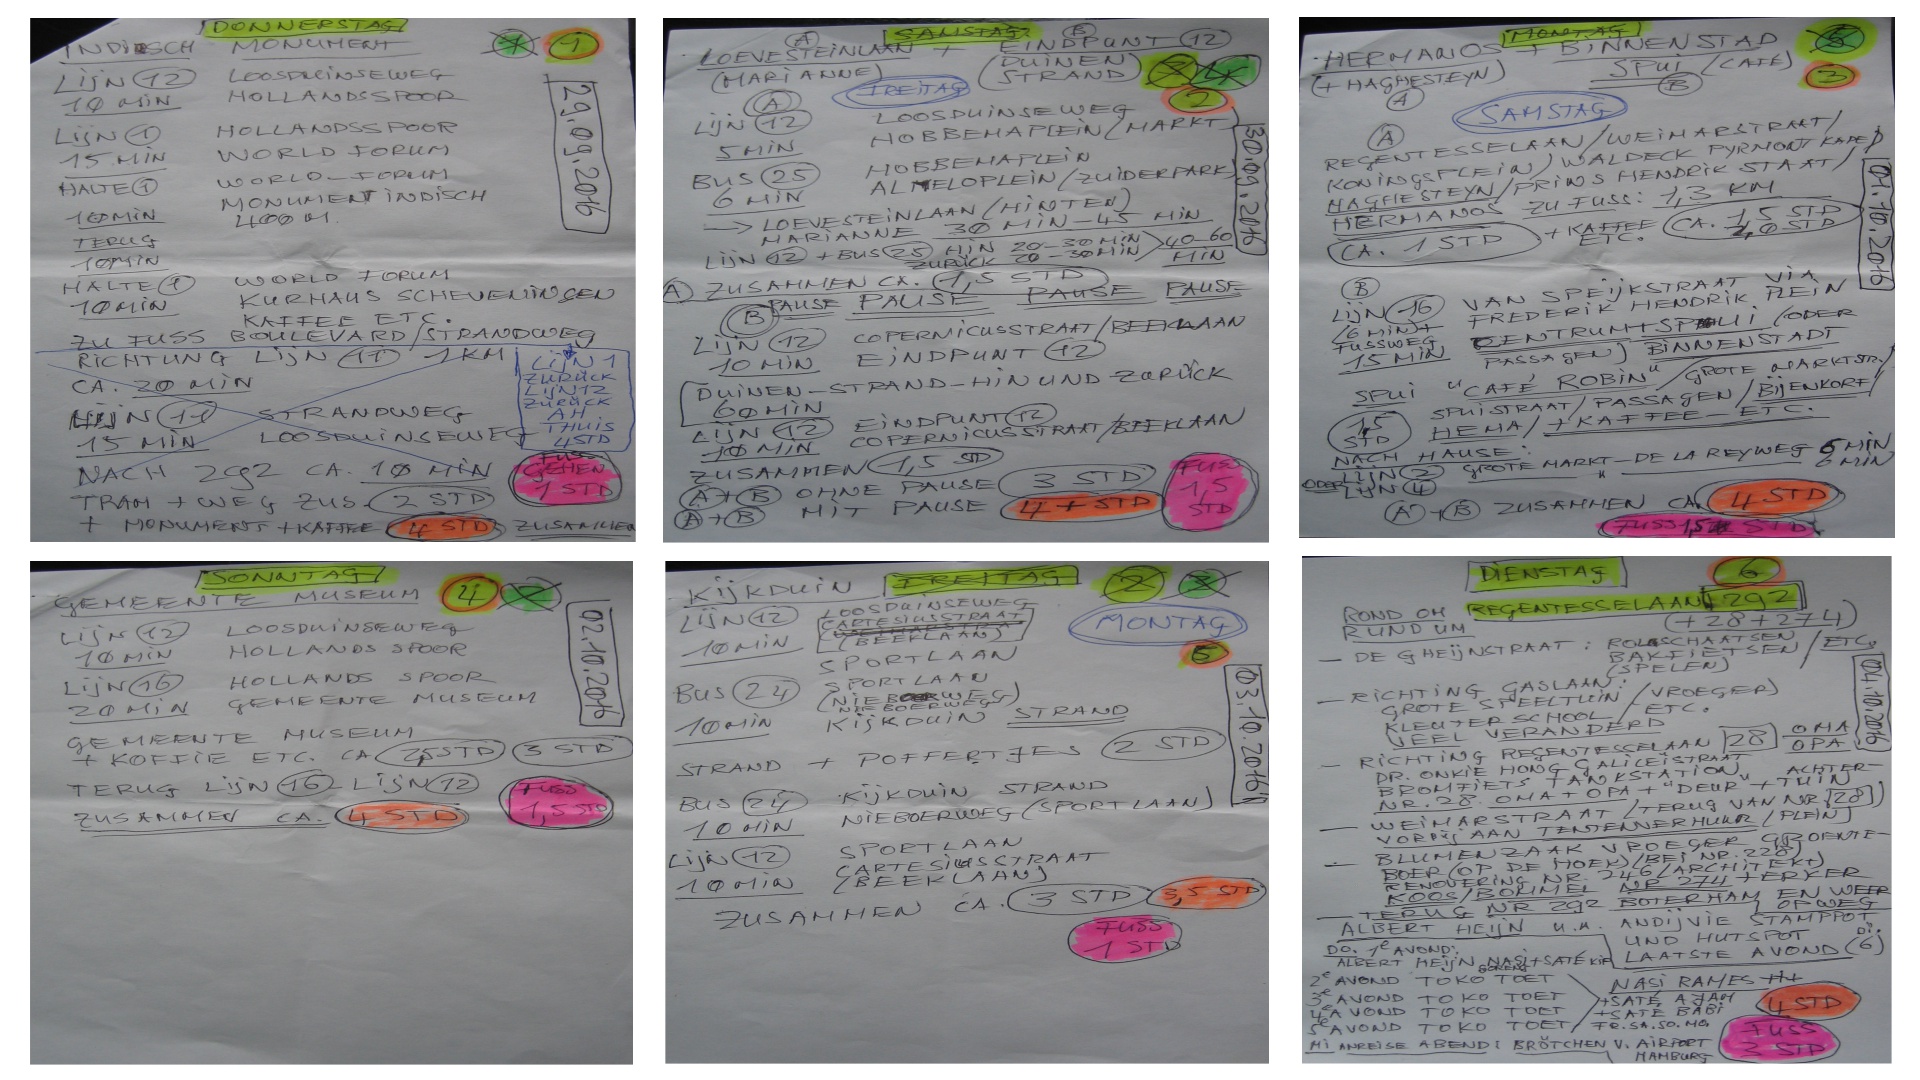 DONNERSTAG
1
INDISCH MONUMENT
LIJN 12 LOOSDUINSEWEG
10 MIN HOLLANDSSPOOR
LIJN 1 HOLLANDSSPOOR
15 MIN WORLD FORUM
HALTE 1 WORLD-FORUM
MONUMENT INDISCH
10 MIN 400 M.
TERUG
10 MIN
HALTE 1 WORLD FORUM
10 MIN KURHAUS SCHEVENINGEN
KAFFEE ETC.
ZU FUSS BOULEVARD/STRANDWEG
RICHTUNG LIJN 11 1 KM
CA. 20 MIN
LIJN 11 STRANDWEG
15 MIN LOOSDUINSEWEG
NACH 292 CA. 10 MIN
TRAM + WEG ZUS. 2 STD
+ MONUMENT + KAFFEE 4 STD ZUSAMMEN
29.09.2016
LIJN 1
ZURÜCK
LIJN 12
ZURÜCK
AH
THUIS
4 STD
FUSS
GEHEN
1 STD
SAMSTAG
A B
LOEVESTEINLAAN + EINDPUNT 12
(MARIANNE) (DUINEN
STRAND)
4
2
FREITAG
A
LIJN 12 LOOSDUINSEWEG
5 MIN HOBBEMAPLEIN (MARKT)
BUS 25 HOBBEMAPLEIN
6 MIN ALMELOPLEIN/ZUIDERPARK
→ LOEVESTEINLAAN (HINTEN)
MARIANNE 30 MIN - 45 MIN
LIJN 12 + BUS 25 HIN 20-30 MIN 40-60
ZURÜCK 20-30 MIN MIN
A ZUSAMMEN CA. 1,5 STD
PAUSE PAUSE PAUSE PAUSE
B
LIJN 12 COPERNICUSSTRAAT/BEEKLAAN
10 MIN EINDPUNT 12
DUINEN-STRAND-HIN UND ZURÜCK
60 MIN
LIJN 12 EINDPUNT 12
10 MIN COPERNICUSSTRAAT/BEEKLAAN
ZUSAMMEN 1,5 STD
A+B OHNE PAUSE 3 STD
A+B MIT PAUSE 4 + STD
30.09.2016
FUSS
1,5
STD
MONTAG
5
3
HERMANOS + BINNENSTAD
(+ HAGHESTEYN) SPUI (CAFÉ)
A B
SAMSTAG
A
REGENTESSELAAN/WEIMARSTRAAT/
KONINGSPLEIN/WALDECK PYRMONT KADE/
HAGHESTEYN/PRINS HENDRIK STAAT/
HERMANOS ZU FUSS: 1,3 KM
CA. 1 STD + KAFFEE ETC. CA. 1,5 STD
2,0 STD
B
LIJN 16 VAN SPEIJKSTRAAT VIA
(6 MIN)+ FREDERIK HENDRIK PLEIN
FUSSWEG ZENTRUM+SPUI (ODER
15 MIN PASSAGEN) BINNENSTADT
SPUI "CAFÉ ROBIN" GROTE MARKTSTR./
SPUISTRAAT/PASSAGEN/BIJENKORF/
1,5 STD HEMA/ + KAFFEE - ETC.
NACH HAUSE:
LIJN 2 GROTE MARKT - DE LA REYWEG 6 MIN
ODER LIJN 4 " 6 MIN
A+B ZUSAMMEN CA. 4 STD
FUSS 1,5 STD
01.10.2016
SONNTAG
4
GEMEENTE MUSEUM
LIJN 12 LOOSDUINSEWEG
10 MIN HOLLANDS SPOOR
LIJN 16 HOLLANDS SPOOR
20 MIN GEMEENTE MUSEUM
GEMEENTE MUSEUM
+ KOFFIE ETC. CA 2,5 STD 3 STD
TERUG LIJN 16 LIJN 12
ZUSAMMEN CA. 4 STD
FUSS
1,5 STD
02.10.2016
KIJKDUIN FREITAG 2 3
MONTAG
5
LIJN 12 LOOSDUINSEWEG
CARTESIUSSTRAAT
10 MIN (BEEKLAAN)
SPORTLAAN
BUS 24 SPORTLAAN
(NIEBOERWEG)
NIEBOERWEG
10 MIN KIJKDUIN STRAND
STRAND + POFFERTJES 2 STD
BUS 24 KIJKDUIN STRAND
10 MIN NIEBOERWEG (SPORTLAAN)
LIJN 12 SPORTLAAN
CARTESIUSSTRAAT
10 MIN (BEEKLAAN)
ZUSAMMEN CA. 3 STD 3,5 STD
FUSS
1 STD
03.10.2016
DIENSTAG
6
ROND OM REGENTESSELAAN 292
RUND UM (+28+274)
— DE GHEIJNSTRAAT: ROLSCHAATSEN
BAKFIETSEN / ETC.
(SPELEN)
— RICHTING GASLAAN:
GROTE SPEELTUIN (VROEGER)
KLEUTER SCHOOL / ETC.
VEEL VERANDERD
— RICHTING REGENTESSELAAN 28 OMA
OPA
DR. ONKIE HONG GALILEISTRAAT
BROMFIETS "TANKSTATION" ACHTER-
NR. 28. OMA + OPA + "DEUR" + TUIN
— WEIMARSTRAAT/TERUG VAN NR. 28)
VORBIJ AAN TENTENVERHUUR/PLEIN)
— BLUMENZAAK VROEGER GROENTE-
BOER (OP DE HOEK)/BEI NR. 228)
RENOVERING NR. 246/ARCHITEKT)
KOOS/BOMMEL NR 274 + ERKER
— TERUG NR 292 BOTERHAM EN WEER
OP WEG
ALBERT HEIJN U.A. ANDIJVIE STAMPPOT
UND HUTSPOT DI.
LAATSTE AVOND (6)
DO. 1e AVOND:
ALBERT HEIJN NASI + SATÉ KIP
GORENG
2e AVOND TOKO TOET NASI RAMES
3e AVOND TOKO TOET + SATÉ AJAM
4e AVOND TOKO TOET + SATÉ BABI
5e AVOND TOKO TOET FR. SA. SO. MO.
4 STD
FUSS
3 STD
MI ANREISE ABEND: BRÖTCHEN V. AIRPORT
HAMBURG
04.10.2016